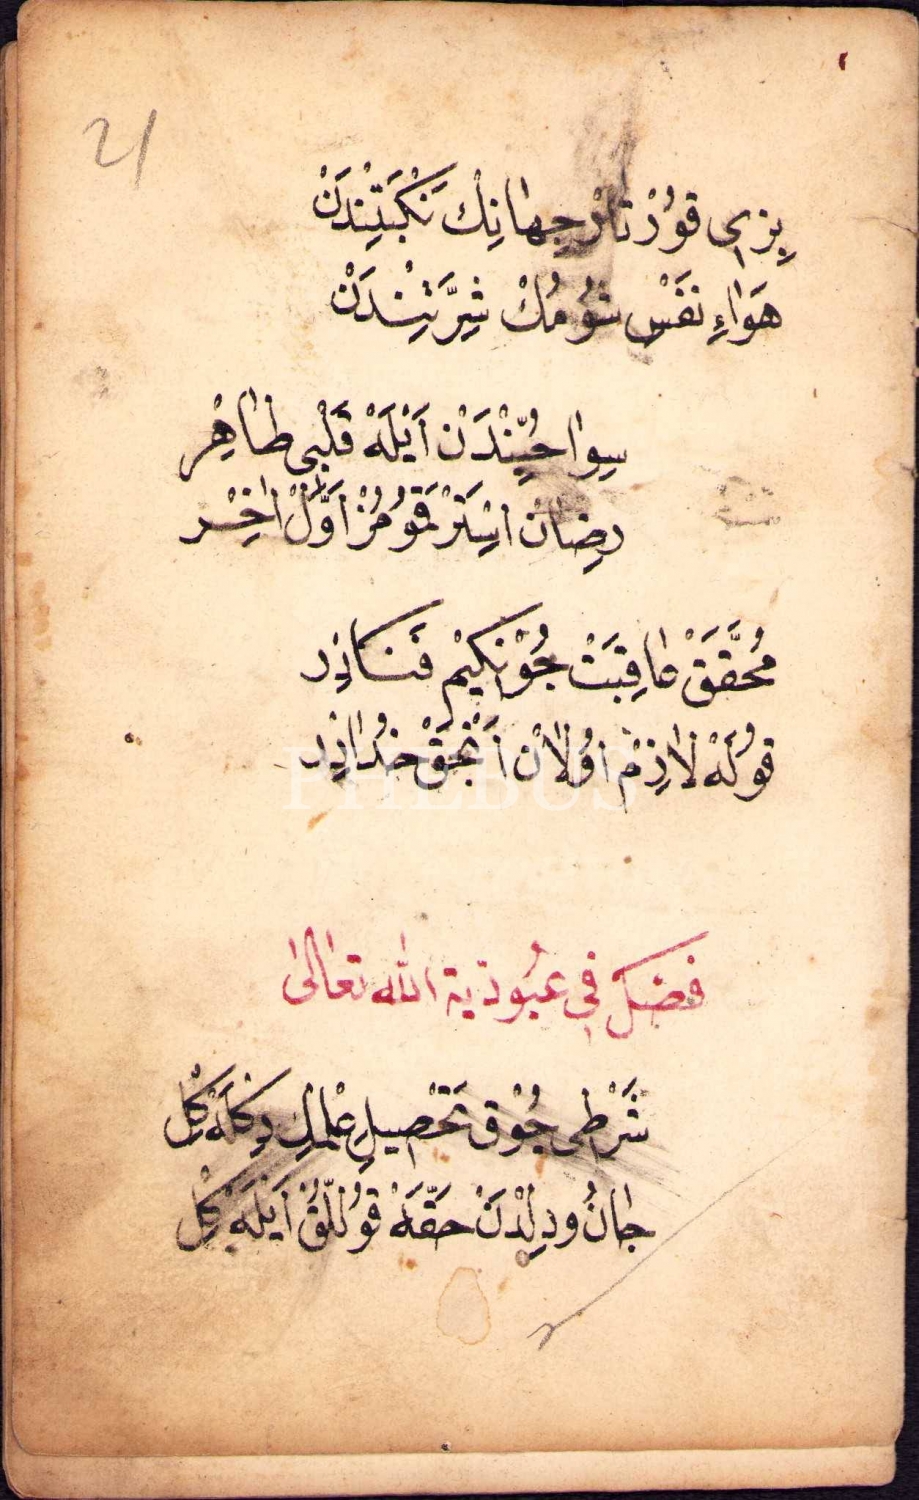 21
بِزِى قوُرْتارْ جِهانِكْ نَكْبَتِنْدَنْ
هَوَاءِ نَفْسِ شوُمُكْ شِرَّتِنْدَنْ
سِوا حُبِّنْدَنْ اَيْلَهْ قَلْبِى طاهِرْ
رِضاكْ اسْتَرْ قَمُومُزْ اَوَّلْ اٰخِرْ
مُحَقَّقْ عاقِبَتْ چُونْكِيمْ فَنادِرْ
قوُلَهْ لازِمْ اوُلانْ اَنْجَقْ خُدادِرْ
فصل فى عبُودية الله تعالىٰ
شَرْطِى چُوق تَحْصِيلِ عِلْمِكْ دِكْلَهْ كَلْ
جانُ ودِلْدَنْ حَقَّهْ قوُللُّقْ اَيْلَهْ كَلْ
PHEBUS